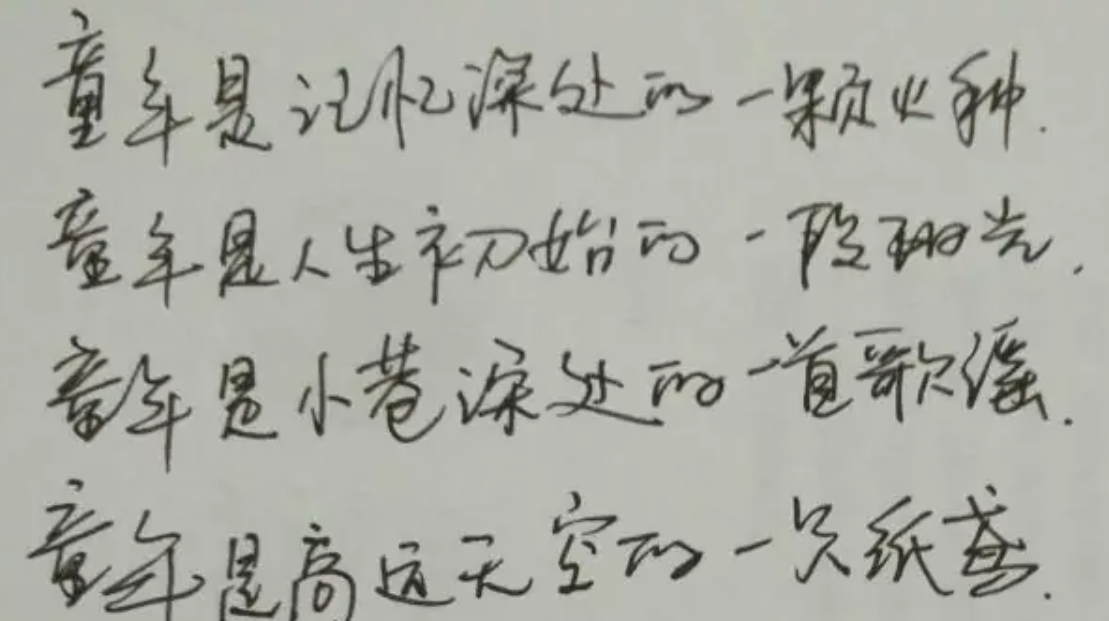 童年是记忆深处的一颗火种.
童年是人生初始的一段珊光.
童年是小巷深处的一首歌谣.
童年是高远天空的一只纸鸢.